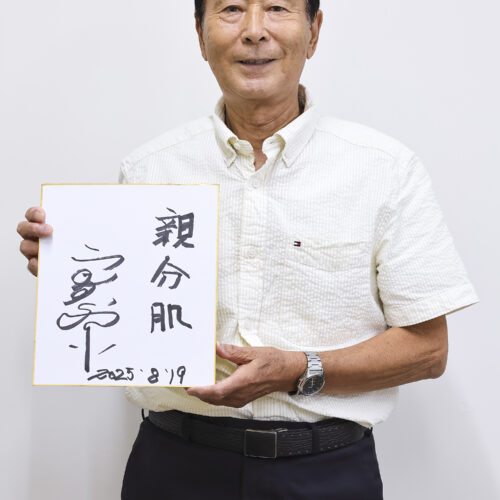 親分肌
2025・8・19